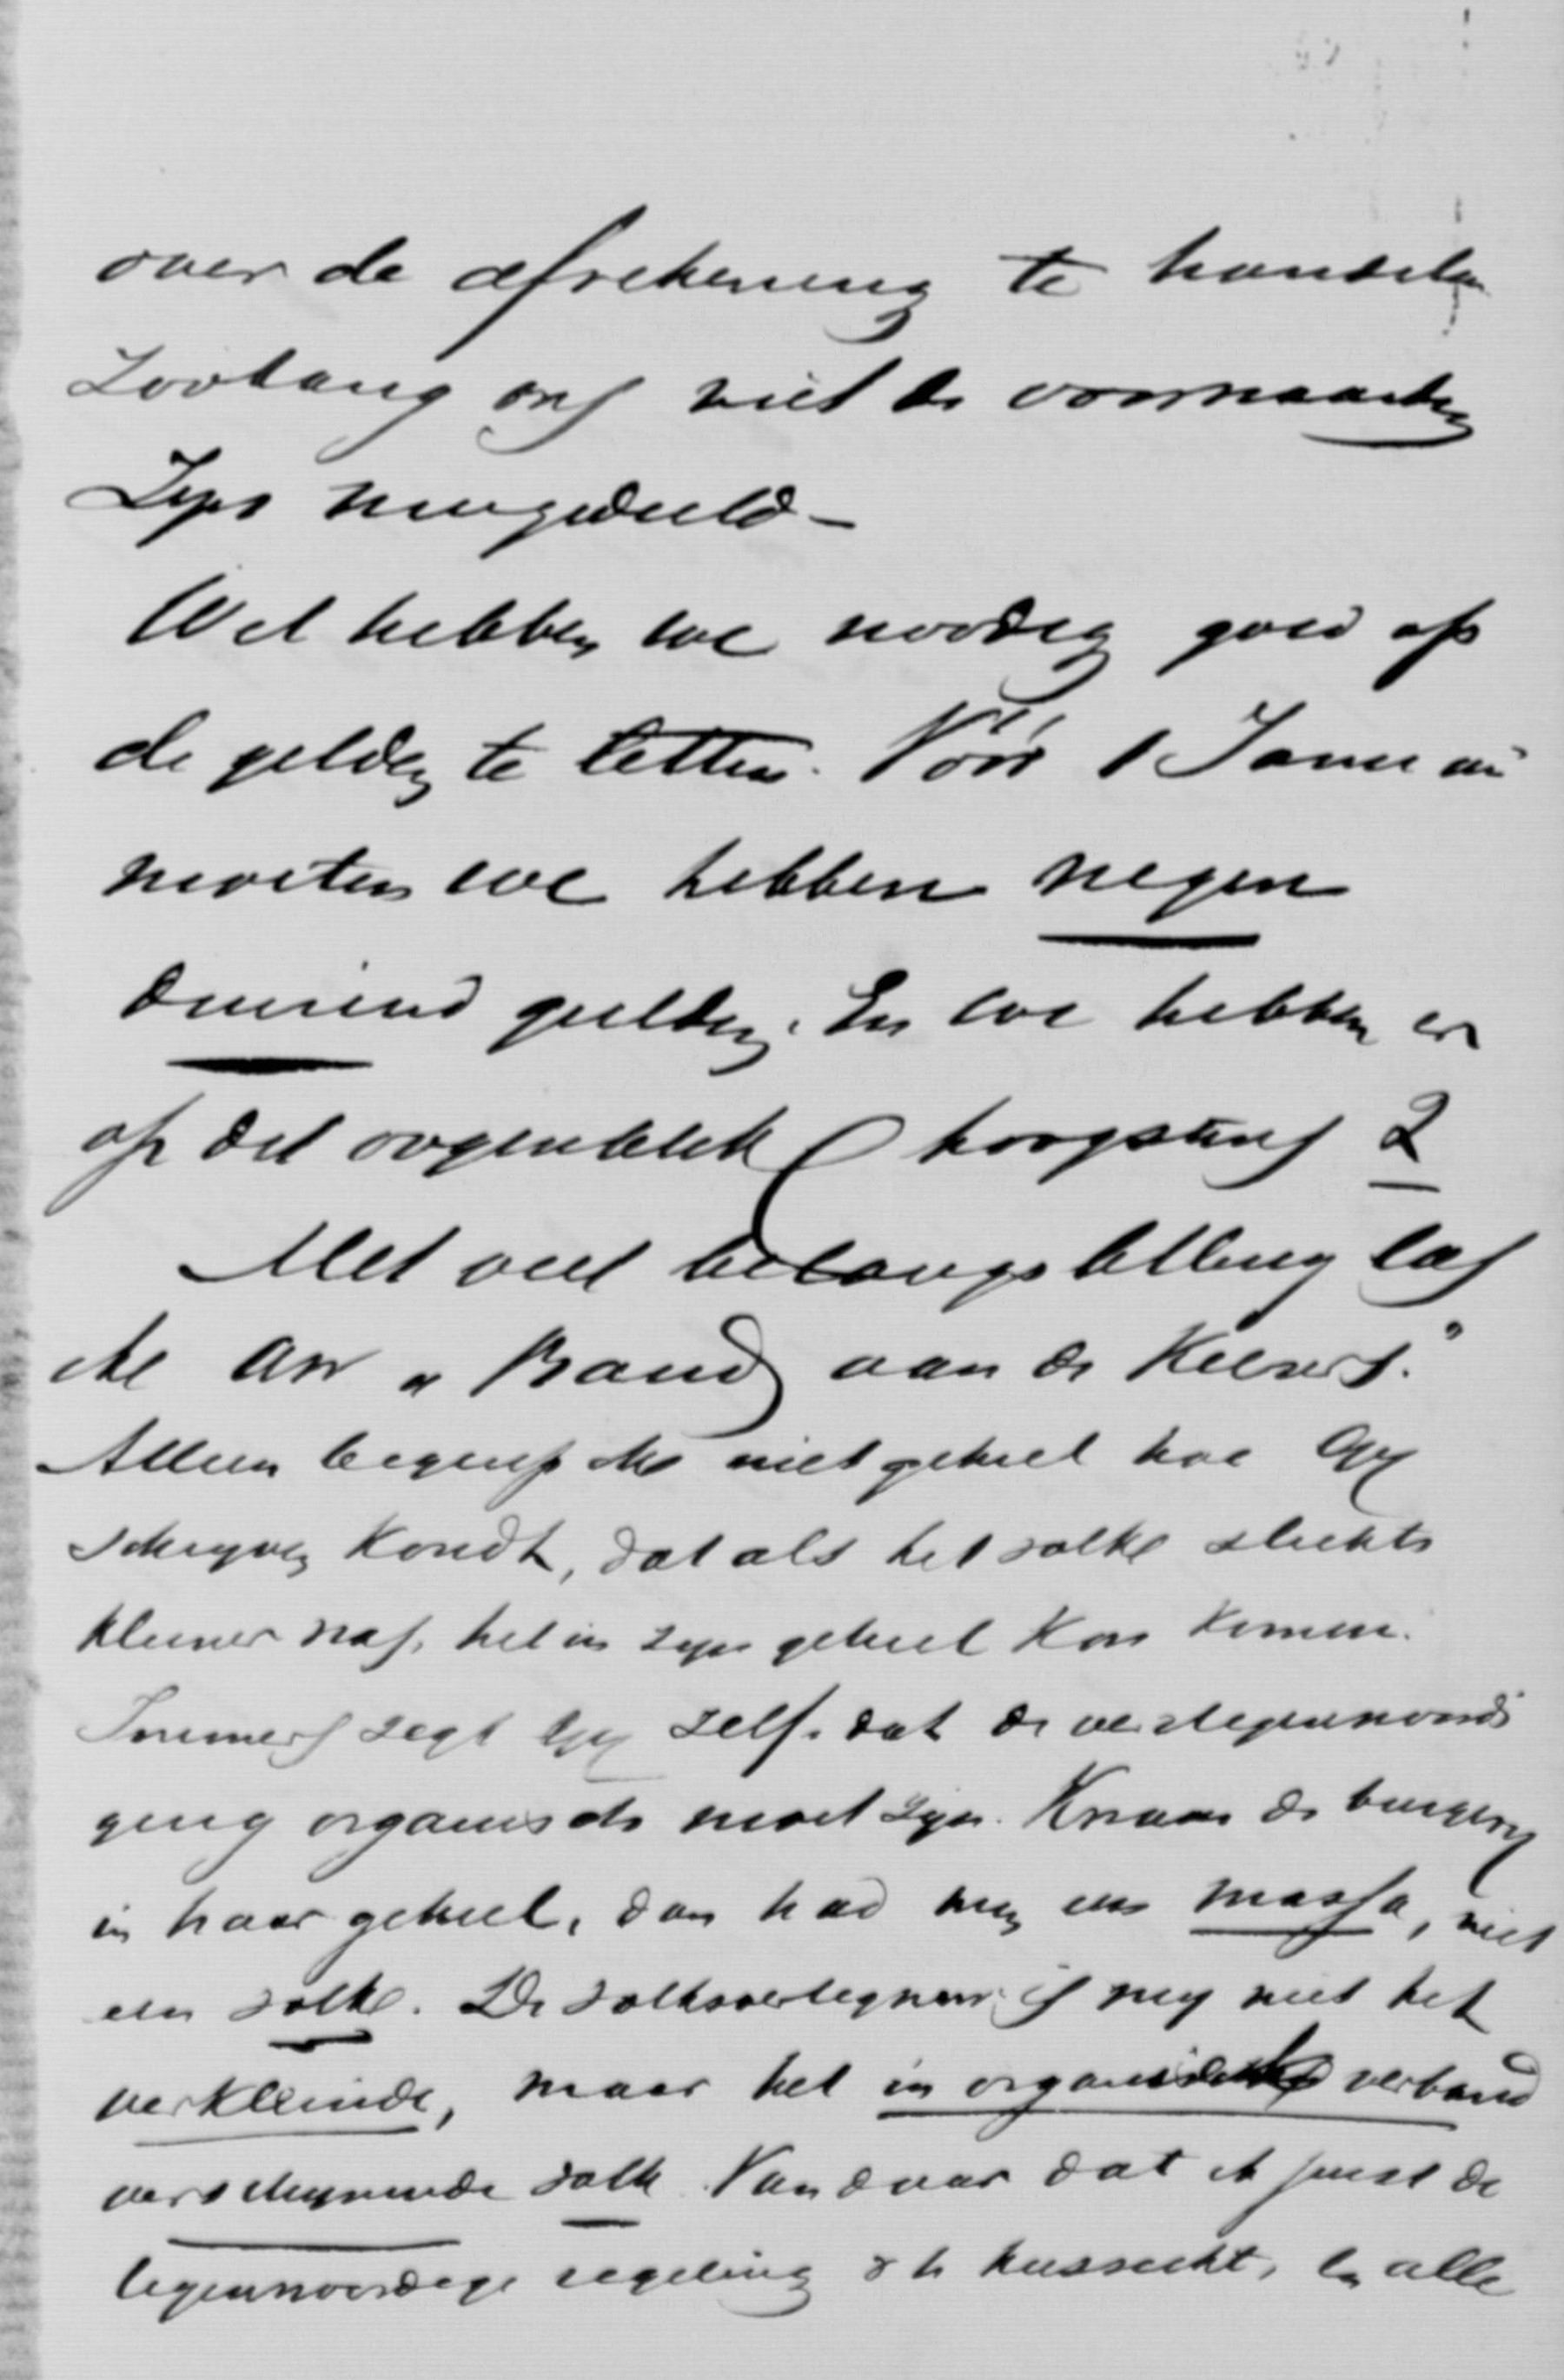 over de afrekening te handelen
Zoolang ons niet de voorwaarden
Zijn meegedeeld -
Wel hebben we noodig goed op
de gelden te letten. Vóór 1 Januari
moeten we hebben negen
duizend gulden. En we hebben er
op dit oogenblik hoogstens 2
Met veel belangstelling las
ik Uw „Brand aan de Kiezers."
Alleen begreep ik niet geheel hoe Gij
schrijven kondt, dat als het volk slechts
kleiner was, het in zijn geheel kon komen.
Immers zegt Gij zelf, dat de vertegenwoordi
ging organisch moet zijn. Kwam de burgerij
in haar geheel, dan had men een massa, niet
een volk. De volksvertegenw. is mij niet het
verkleinde, maar het in organisch verband
verschijnende volk. Vandaar dat ik juist de
tegenwoordige regeling d h kiesrecht, en alle